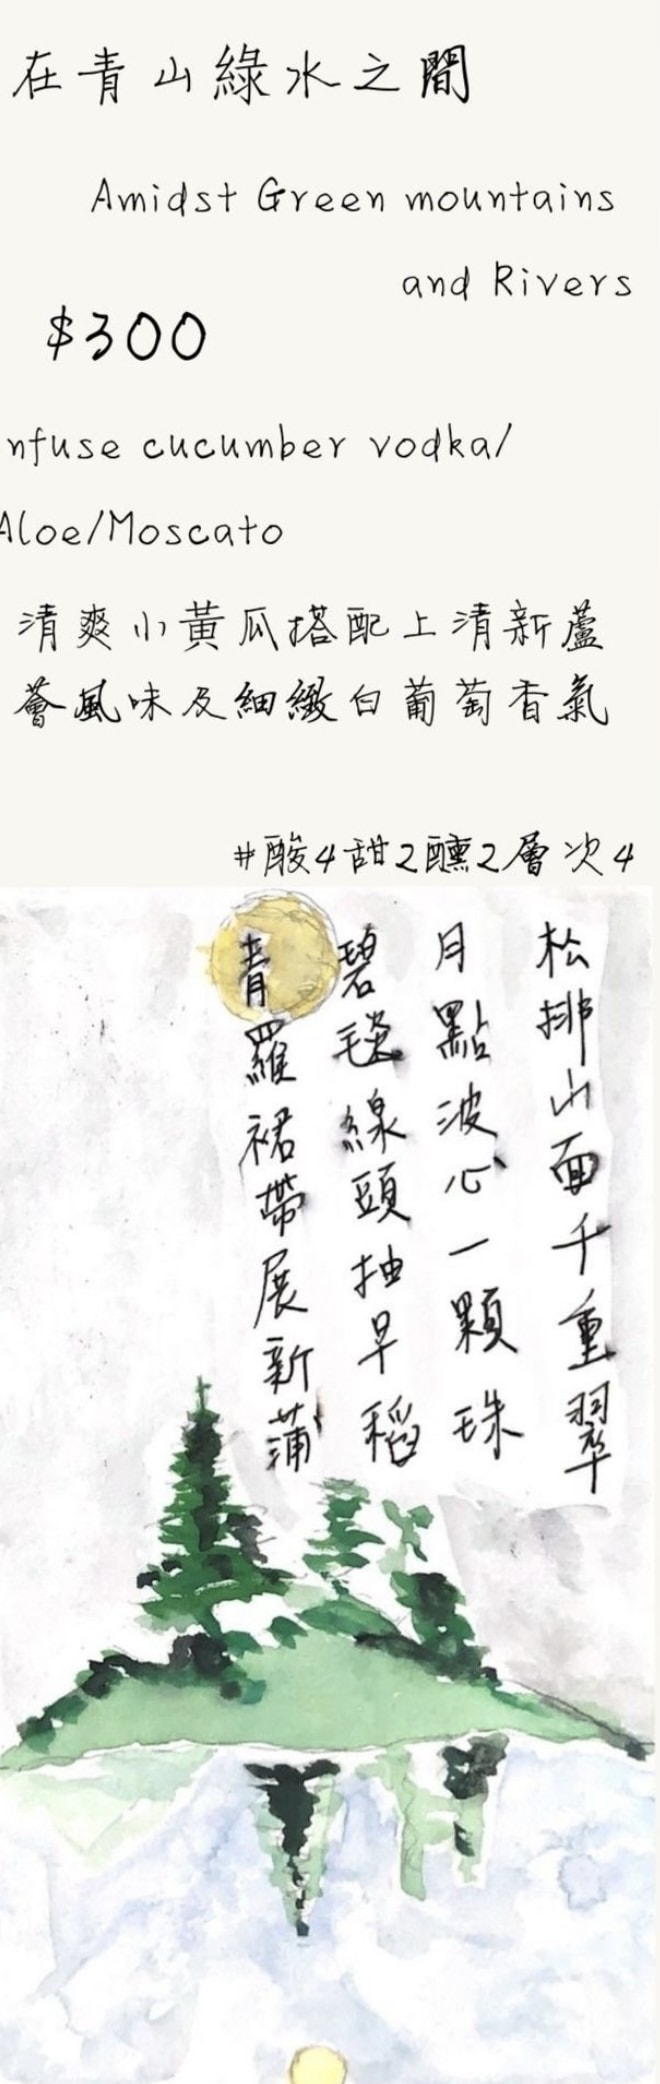 在青山綠水之間
Amidst Green mountains
and Rivers
$300
nfuse cucumber vodka/
Aloe/Moscato
清爽小黃瓜搭配上清新蘆
薈風味及細緻白葡萄香氣
#酸4甜2醺2層次4
松排山面千重翠
月點波心一顆珠
碧毯線頭抽早稻
青羅裙帶展新蒲